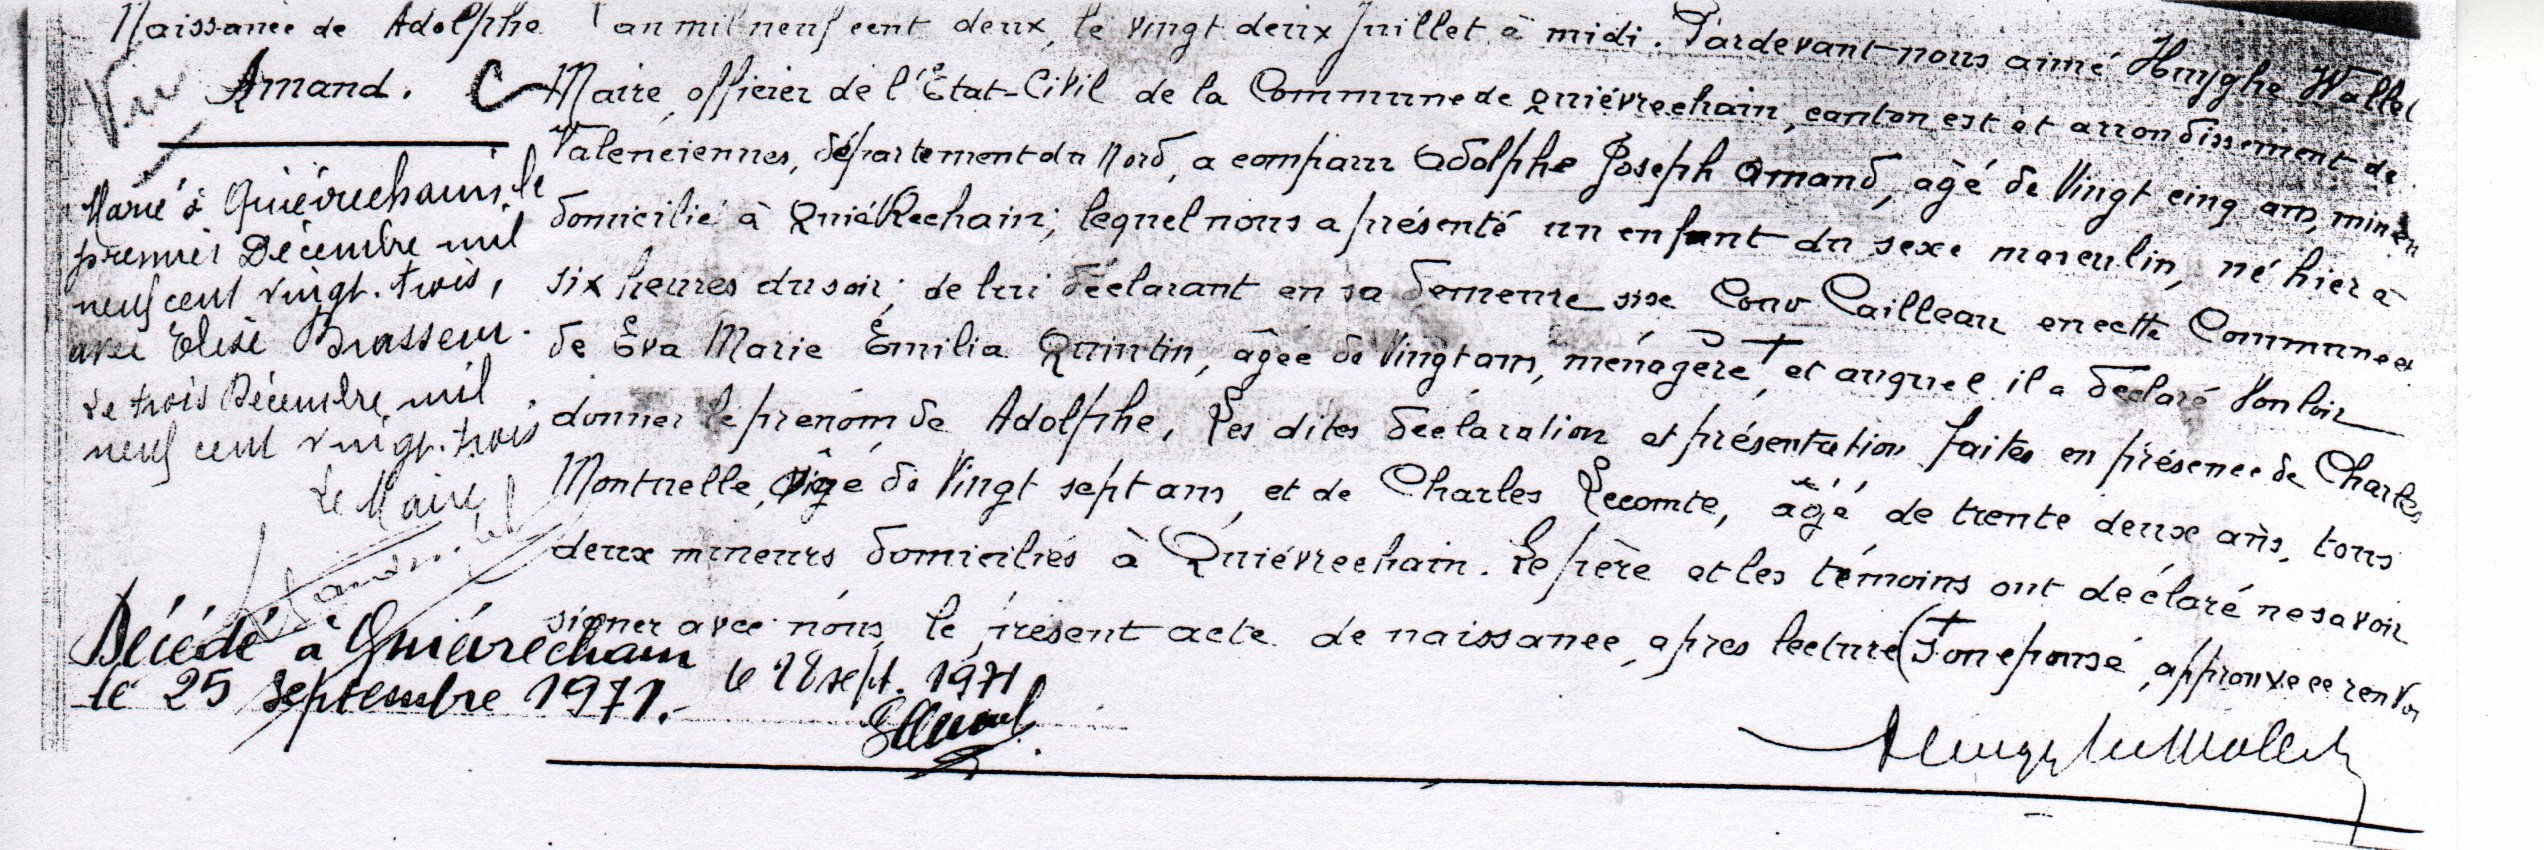 Naissance de Adolphe
Amand.
Vu
Marié à Quiévrechain, le
premier Décembre mil
neuf cent vingt-trois,
avec Elise Brasseur.
Le trois Décembre mil
neuf cent vingt-trois
Le Maire,
Décédé à Quiévrechain
le 25 septembre 1971.
le 28 sept. 1971
L'an mil neuf cent deux, le vingt deux Juillet à midi. Pardevant-nous aimé Huyghe Wallet
Maire, officier de l'Etat-Civil de la Commune de Quiévrechain, canton est et arrondissement de
Valenciennes, département du Nord, a comparu Adolphe Joseph Amand, âgé de Vingt cinq ans, mineur
domicilié à Quiévrechain; lequel nous a présenté un enfant du sexe masculin, né hier à
six heures du soir; de lui déclarant en sa demeure sise Cour Cailleau en cette Commune et
de Eva Marie Emilia Quintin, âgée de Vingt ans, ménagère +, et auquel il a déclaré Vouloir
donner le prénom de Adolphe, Les dites déclaration et présentation faites en présence de Charles
Montuelle, âgé de Vingt sept ans, et de Charles Lecomte, âgé de trente deux ans, tous
deux mineurs domiciliés à Quiévrechain. Le père et les témoins ont déclaré ne savoir
signer avec nous le présent acte de naissance, apres lecture (+ son épouse, approuve ce renvoi
Huyghe Wallet